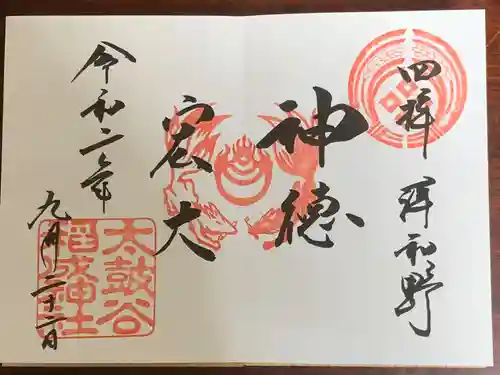 四拝 津和野
神徳
宏大
令和二年
九月二十二日
太鼓谷
稲成神社